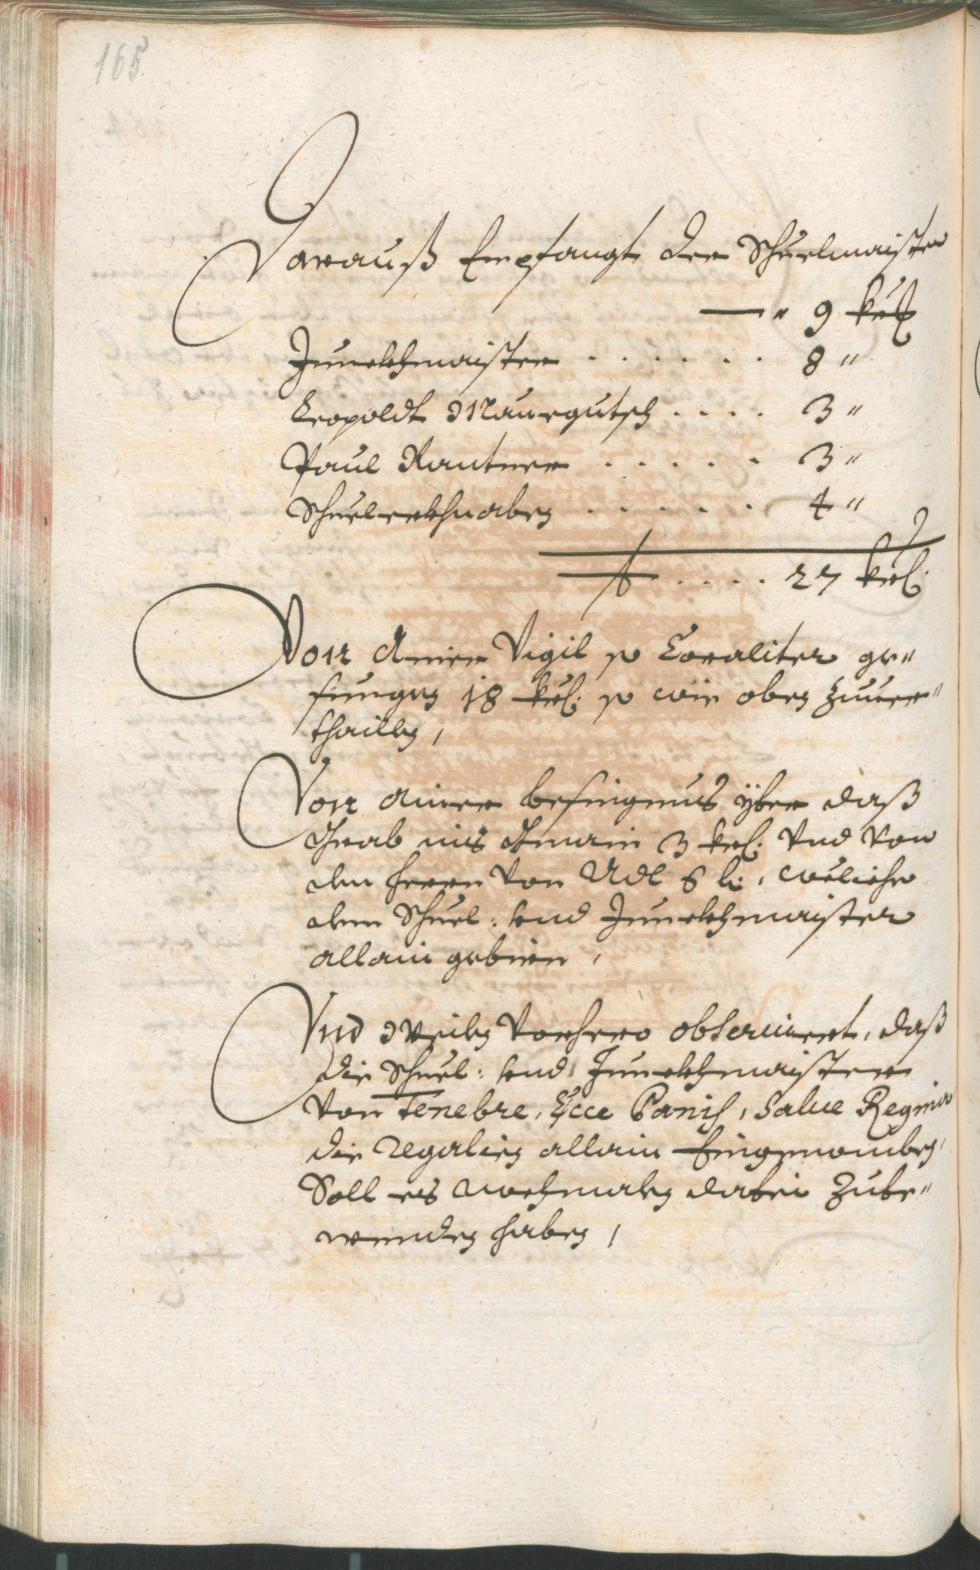 165
Darauß Empfangt der Schuelmaister
— " 9 kr
Junckhmaister . . . . . . 8 "
Leopoldt Maurgutsch . . . . 3 "
Paul Rantner . . . . . 3 "
Schuelerkhnaben . . . . . . 4 "
. . . . 27 kr
Von Ainer Vigil so Coraliter ge"
sungen 18 kr: so wie oben Zuuer"
thailln,
Von ainer besingnus yber daß
Grab ins Gmain 3 kr: Vnd von
den herrn von Adl 6 ß:, weliche
dem Schuel: vnd Junckhmaister
allain gebirn,
Vnd Weiln vorhero obseruiert, daß
die Schuel: vnd Junckhmaister
von Tenebre, Ecce Panis, Salue Regina
die Regalien allain Eingenomben,
Soll es nochmaln dabei Zube"
wenden haben,